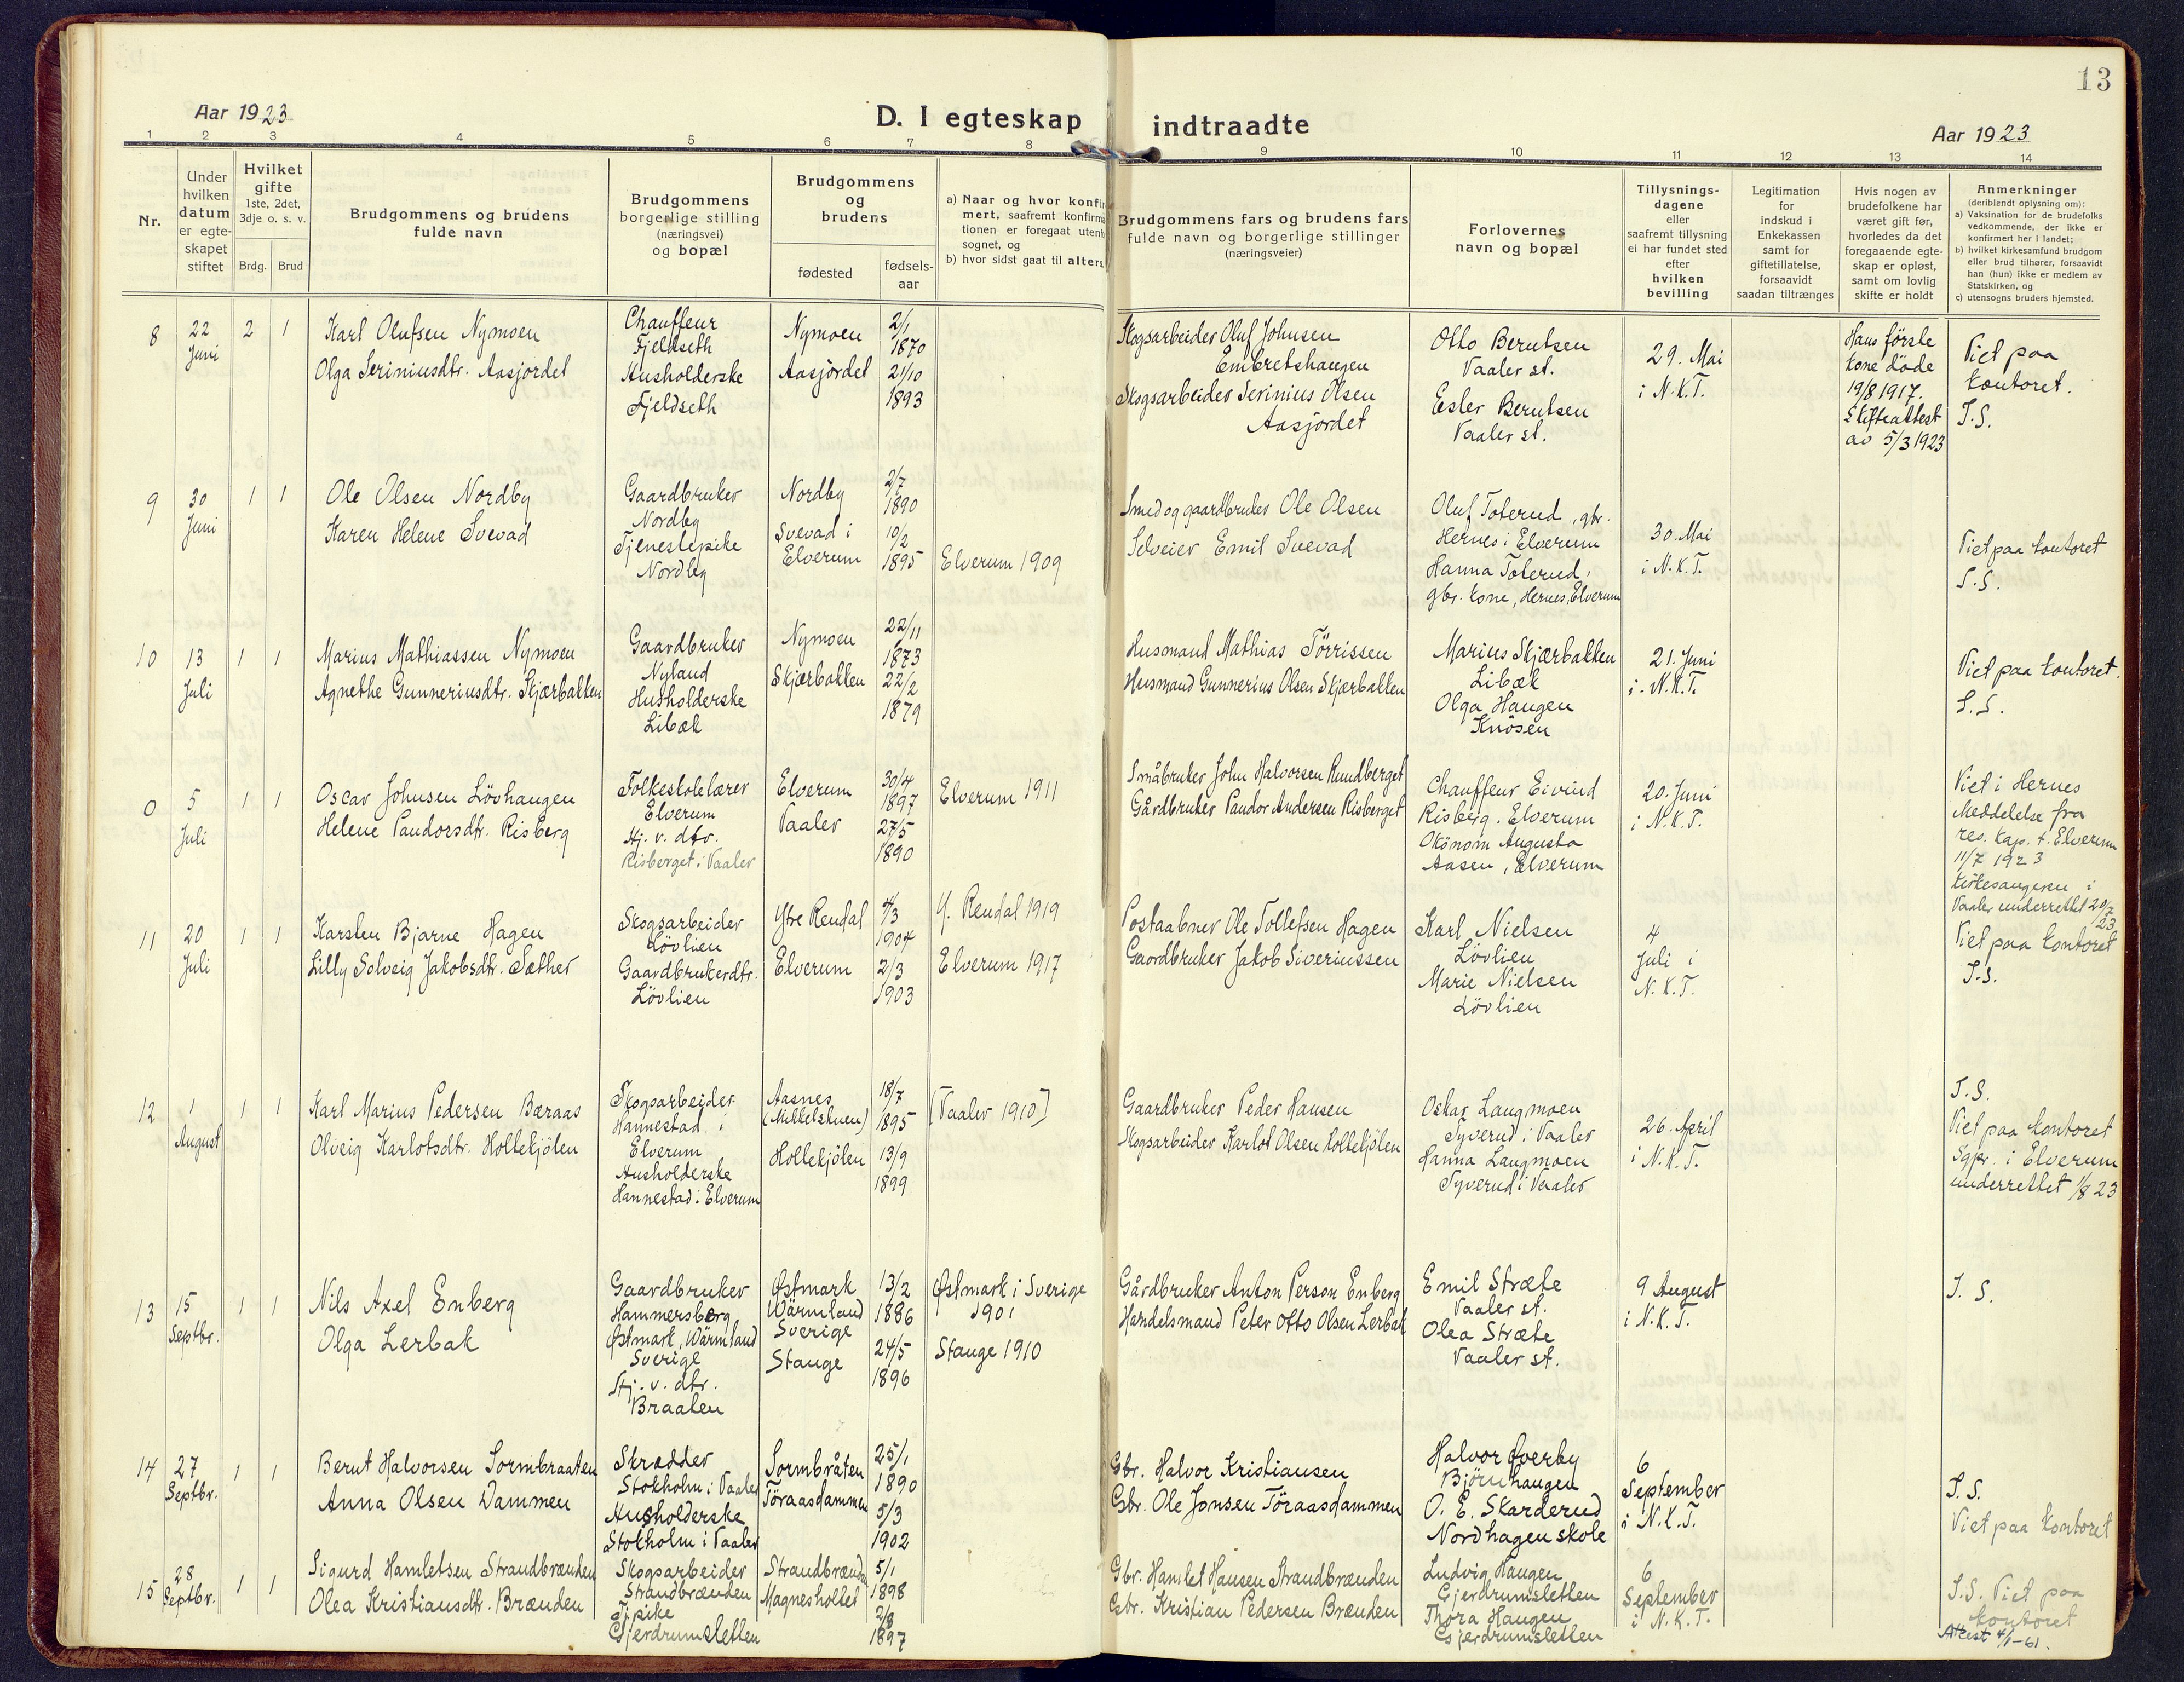 13
Aar 1923
D. I egteskap indtraadte
Aar 1923
1 2 3 4 5 6 7 8 9 10 11 12 13 14
Nr.
Under hvilken datum er egte-skapet stiftet
Hvilket gifte
1ste, 2det, 3dje o. s. v.
Brdg. Brud
Brudgommens og brudens
fulde navn
Brudgommens
borgerlige stilling
(næringsvei)
og bopæl
Brudgommens
og
brudens
fødested
fødsels-
aar
a) Naar og hvor konfir
mert, saafremt konfirma
tionen er foregaat utenfo
sognet, og
b) hvor sidst gaat til alters
Brudgommens fars og brudens fars
fulde navn og borgerlige stillinger
(næringsveier)
Forlovernes
navn og bopæl
Tillysnings-
dagene
eller
saafremt tillysning
ei har fundet sted
efter
hvilken
bevilling
Legitimation
for
indskud i
Enkekassen
samt for
giftetillatelse,
forsaavidt
saadan tiltrænges
Hvis nogen av
brudefolkene har
været gift før,
hvorledes da det
foregaaende egte-
skap er opløst,
samt om lovlig
skifte er holdt
Anmerkninger
(deriblandt oplysning om):
a) Vaksination for de brudefolks
vedkommende, der ikke er
konfirmert her i landet;
b) hvilket kirkesamfund brudgom
eller brud tilhører, forsaavidt
han (hun) ikke er medlem av
Statskirken, og
c) utensogns bruders hjemsted.
8
22
Juni
2 1
Karl Olufsen Nymoen
Olga Seriniusdtr. Aasjordet
Chauffeur
Fjeldseth
Husholderske
Fjeldseth
Nymoen
Aasjordet
2/1
1870
21/10
1893
Skogsarbeider Oluf Johnsen
Embretshaugen
Skogsarbeider Serinius Olsen
Aasjordet
Otto Berntsen
Vaaler st.
Ester Berntsen
Vaaler st.
29. Mai
i N.K.T.
Hans første
kone døde
19/8 1917.
Skifteattest
av 5/3 1923
Viet paa
kontoret.
S.S.
9
30
Juni
1 1
Ole Olsen Nordby
Karen Helene Svevad
Gaardbruker
Nordby
Tjenestepike
Nordby
Nordby
Svevad i
Elverum
2/7
1890
10/2
1895
Elverum 1909
Smed og gaardbruker Ole Olsen
Selveier Emil Svevad
Oluf Toterud, gbr.
Hernes i Elverum
Hanna Toterud,
gbr. kone, Hernes, Elverum
30. Mai
i N.K.T.
Viet paa kontoret
S.S.
10
13
Juli
1 1
Marius Mathiassen Nymoen
Agnethe Gunneriusdtr. Skjærbakken
Gaardbruker
Nyland
Husholderske
Libæk
Nymoen
Skjærbakken
22/11
1873
22/2
1879
Husmand Mathias Törrissen
Husmand Gunnerius Olsen Skjærbakken
Marius Skjærbakken
Libæk
Olga Haugen
Knösen
21. Juni
i N.K.T.
Viet paa kontoret.
S.S.
0
5
Juli
1 1
Oscar Johnsen Lövhaugen
Helene Pandorsdtr. Risberg
Folkeskolelærer
Elverum
Hj. v. dtr.
Risberget i Vaaler
Elverum
Vaaler
30/4
1897
27/5
1890
Elverum 1911
Småbruker John Halvorsen Rundberget
Gårdbruker Pandor Andersen Risberget
Chauffeur Eivind
Risberg. Elverum
Ökonom Augusta
Aasen, Elverum
20. Juni
i N.K.T.
Viet i Hernes
Meddelelse fra
res. kap. t. Elverum
11/7 1923
Kirkesangeren i
Vaaler underrettet 20/7
23
11
20
Juli
1 1
Karsten Bjarne Hagen
Lilly Solveig Jakobsdtr. Sæther
Skogsarbeider
Lövlien
Gaardbrukerdtr.
Lövlien
Ytre Rendal
Elverum
4/3
1904
2/3
1903
Y. Rendal 1919
Elverum 1917
Postaabner Ole Tollefsen Hagen
Gaardbruker Jakob Siverinssen
Karl Nielsen
Lövlien
Marie Nielsen
Lövlien
4
Juli i
N.K.T.
Viet paa kontoret
S.S.
12
1
August
1 1
Karl Marius Pedersen Bæraas
Olveig Karlotsdtr. Holtekjölen
Skogsarbeider
Hannestad i
Elverum
Husholderske
Hannestad i Elverum
Aasnes
(Mikkelstuen)
Holtekjölen
18/7
1895
13/9
1899
[Vaaler 1910]
Gaardbruker Peder Hansen
Skogsarbeider Karlot Olsen Holtekjölen
Oskar Langmoen
Tyverud i Vaaler
Hanna Langmoen
Tyverud i Vaaler
26. April
i N.K.T.
S.S.
Viet paa kontoret
Sgpr. i Elverum
underrettet 1/8 23
13
15
Septbr.
1 1
Nils Axel Enberg
Olga Lerbak
Gaardbruker
Hammersberg
Östmark, Wärmland
Sverige
Hj. v. dtr.
Braaten
Östmark
Wärmland
Sverige
Stange
13/2
1886
24/5
1896
Östmark i Sverige
1901
Stange 1910
Gårdbruker Anton Person Enberg
Handelsmand Peter Otto Olsen Lerbak
Emil Stræte
Vaaler st.
Olea Stræte
Vaaler st.
9 August
i N.K.T.
S. S.
14
27
Septbr.
1 1
Bernt Halvorsen Sormbraaten
Anna Olsen Dammen
Skrædder
Stokholm i Vaaler
Husholderske
Stokholm i Vaaler
Sormbråten
Töraasdammen
25/1
1890
5/3
1902
Gbr. Halvor Kristiansen
Gbr. Ole Jonsen Töraasdammen
Halvor Överby
Björnhaugen
O. E. Skarderud
Nordhagen skole
6
September
i N.K.T.
S.S.
Viet paa kontoret
15
28
Septbr.
1 1
Sigurd Hamletsen Strandbrænden
Olea Kristiansdtr. Brænden
Skogsarbeider
Strandbrænden
Tj.pike
Gjerdrumsletten
Strandbrænden
Magnesholtet
5/1
1898
2/8
1897
Gbr. Hamlet Hansen Strandbrænden
Gbr. Kristian Pedersen Brænden
Ludvig Haugen
Gjerdrumsletten
Thora Haugen
Gjerdrumsletten
6
September
i N.K.T.
S.S. Viet paa
kontoret
Attest 4/1-61.